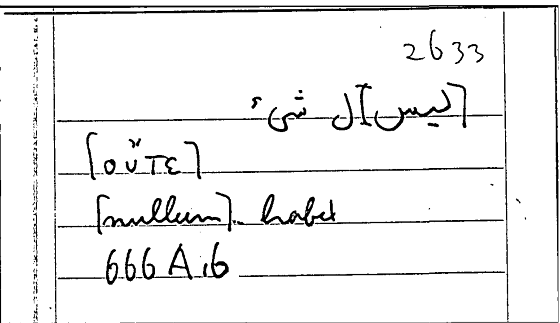 2633
[ليس] ل شىء
[οὔτε]
[nullum] habet
666 A 16